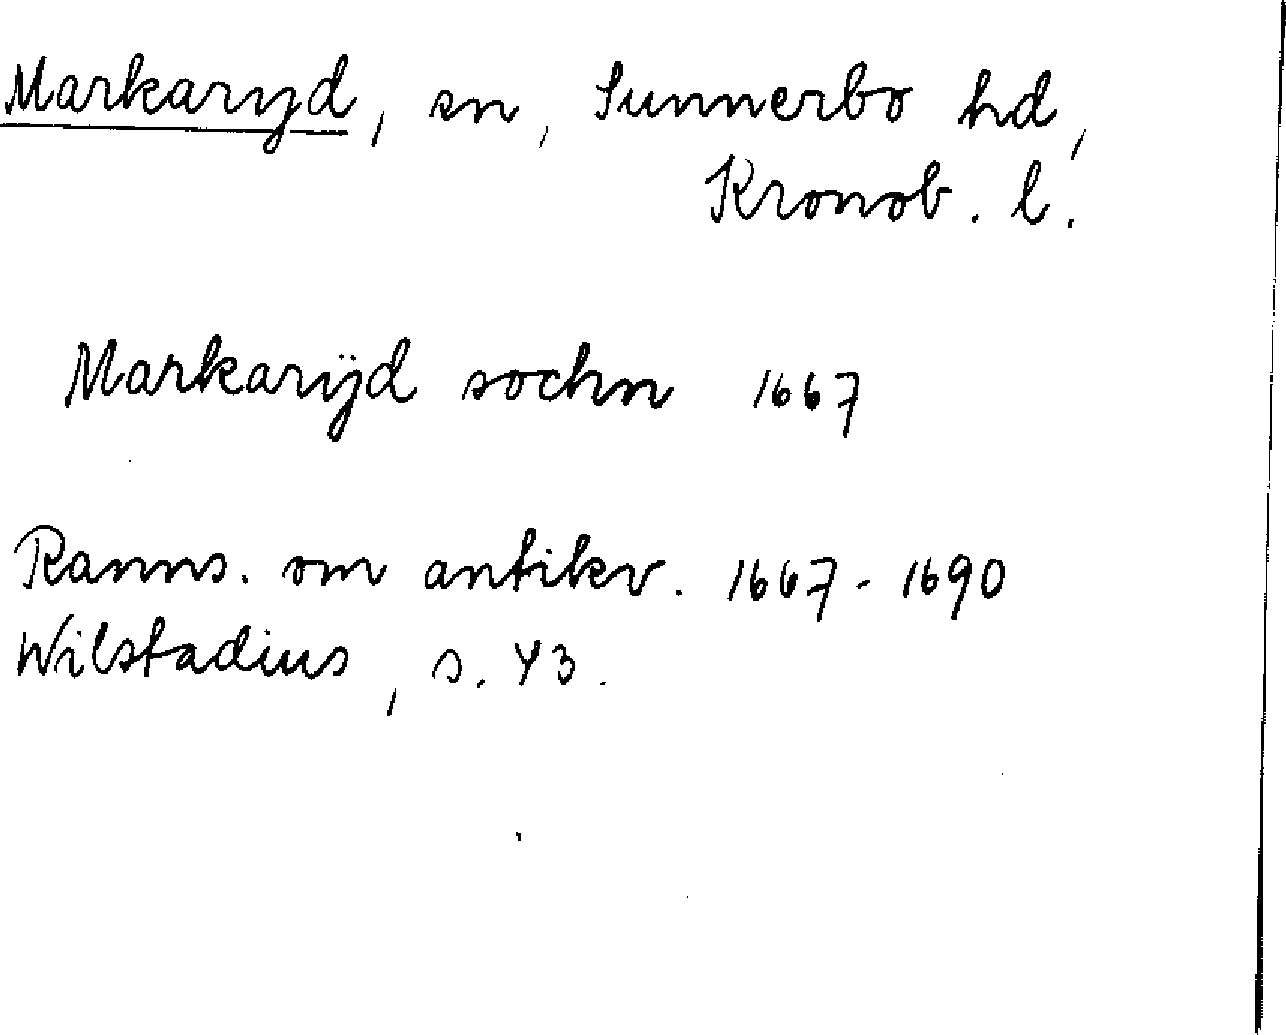 Markaryd, sn, Sunnerbo hd,
Kronob. l.
Markarÿd sochn 1667
Ranns. om antikv. 1667-1690
Wilstadius, s. 43.